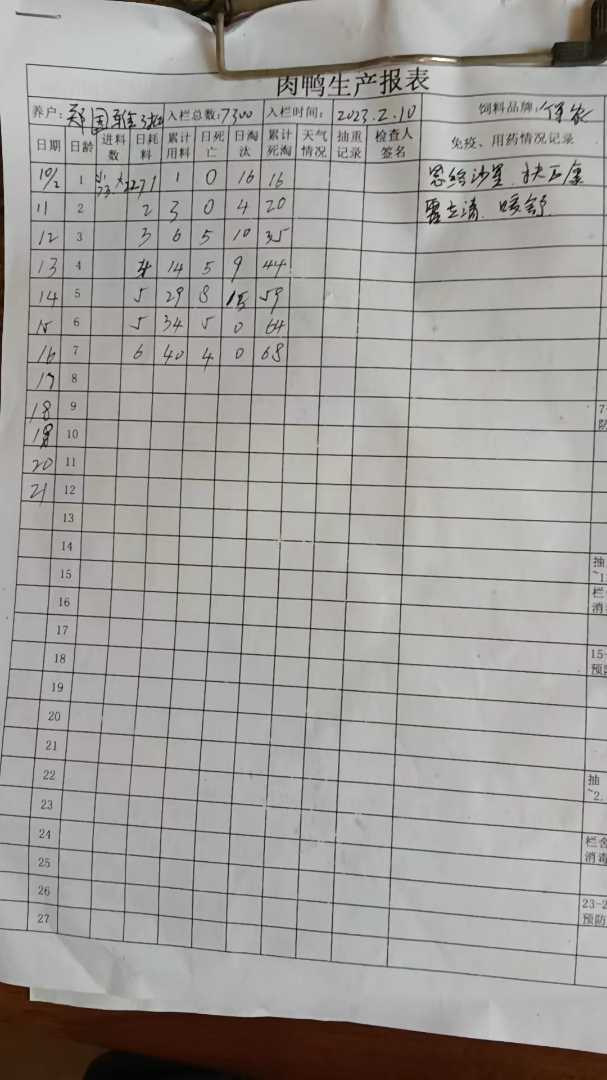 肉鸭生产报表
养户: 郑国 入栏总数: 7300 入栏时间: 2023.2.10 饲料品牌:
日期 日龄 进料数 日耗料 累计用料 日死亡 日淘汰 累计死淘 天气情况 抽重记录 检查人签名 免疫、用药情况记录
10/2 1 1 1 0 16 16 恩给沙星
11 2 2 3 0 4 20
12 3 3 6 5 10 35
13 4 4 14 5 9 44
14 5 5 29 8 15 59
15 6 5 34 5 0 64
16 7 6 40 4 0 68
17 8
18 9 7
防
19 10
20 11
21 12
13
14
抽
15 ~1
栏
16 消
17
15-
18 预防
19
20
21
抽
22 ~2.
23
栏舍
24 消毒
25
23-2
26 预防
27